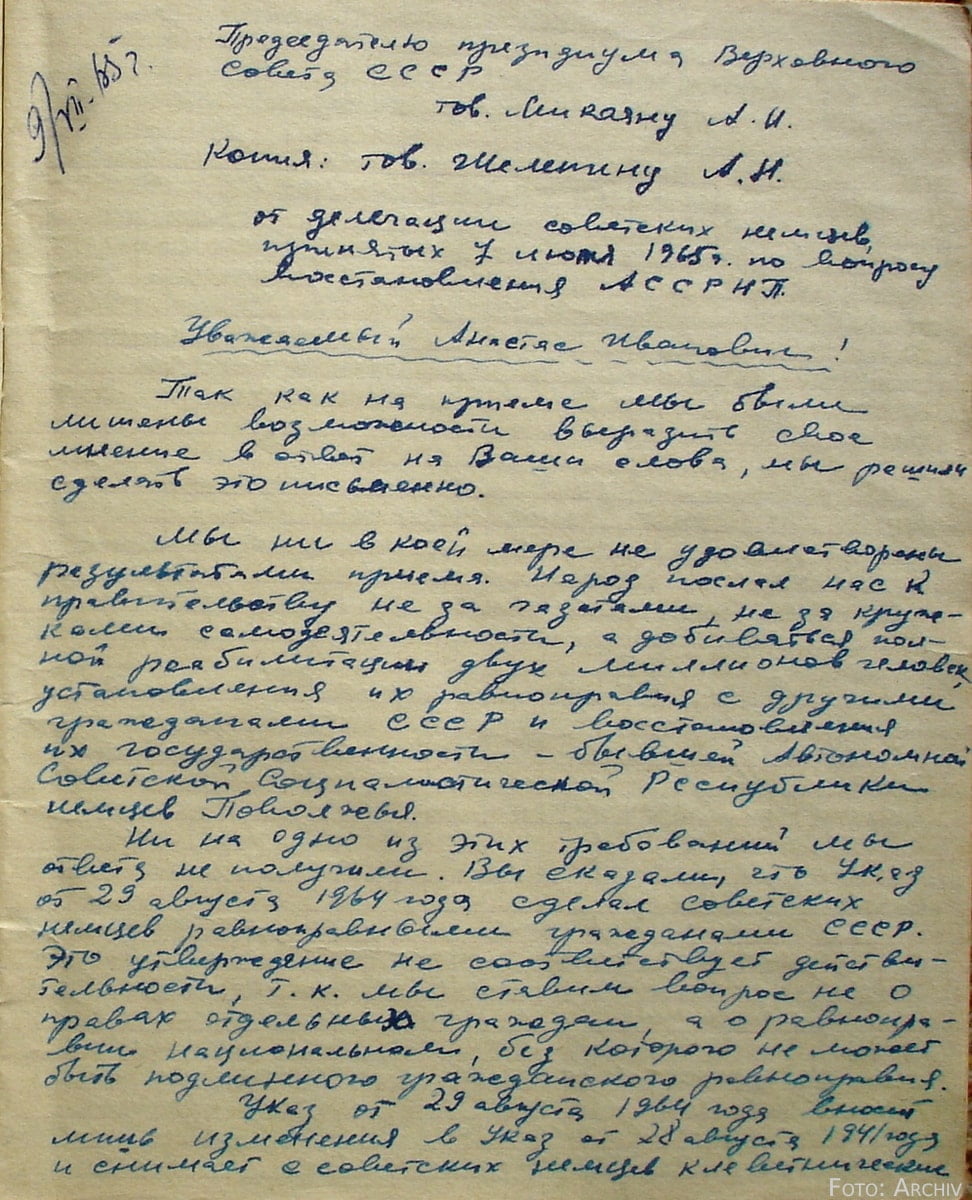 9/VII-65 г.
Председателю президиума Верховного
Совета СССР
тов. Микояну А. И.
Копия: тов. Шелепину А. Н.
от делегации советских немцев,
принятых 7 июля 1965 г. по вопросу
восстановления АССРНП.
Уважаемый Анастас Иванович!
Так как на приеме мы были
лишены возможности выразить свое
мнение в ответ на Ваши слова, мы решили
сделать это письменно.
Мы ни в коей мере не удовлетворены
результатами приема. Народ послал нас к
правительству не за газетами, не за круж-
ками самодеятельности, а добиваться пол-
ной реабилитации двух миллионов человек,
установления их равноправия с другими
гражданами СССР и восстановления
их государственности – бывшей Автономной
Советской Социалистической Республики
немцев Поволжья.
Ни на одно из этих требований мы
ответа не получили. Вы сказали, что Указ
от 29 августа 1964 года сделал советских
немцев равноправными гражданами СССР.
Это утверждение не соответствует действи-
тельности, т. к. мы ставим вопрос не о
правах отдельных граждан, а о равнопра-
вии национальном, без которого не может
быть подлинного гражданского равноправия.
Указ от 29 августа 1964 года вносит
лишь изменения в Указ от 28 августа 1941 года
и снимает с советских немцев клеветнические
FOTO: ARCHIV